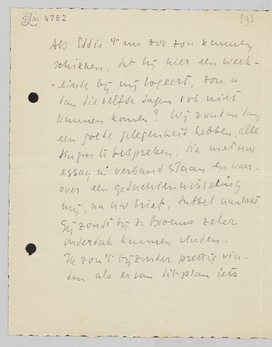 4782 [9]
Als Eddie 't nu zoo zou kunnen
schikken, dat hij hier een week-
-einde bij mij logeert, zou u
dan diezelfde dagen ook niet
kunnen komen? Wij zouden dan
een goede gelegenheid hebben, alle
dingen te bespreken, die met uw
essay in verband staan en waar-
over een gedachtenwisseling
mij, na uw brief, dubbel aanlokt
Gij zoudt bij de zeker
onderdak kunnen vinden.
Ik zou 't bijzonder prettig vin-
den als er van dit plan iets